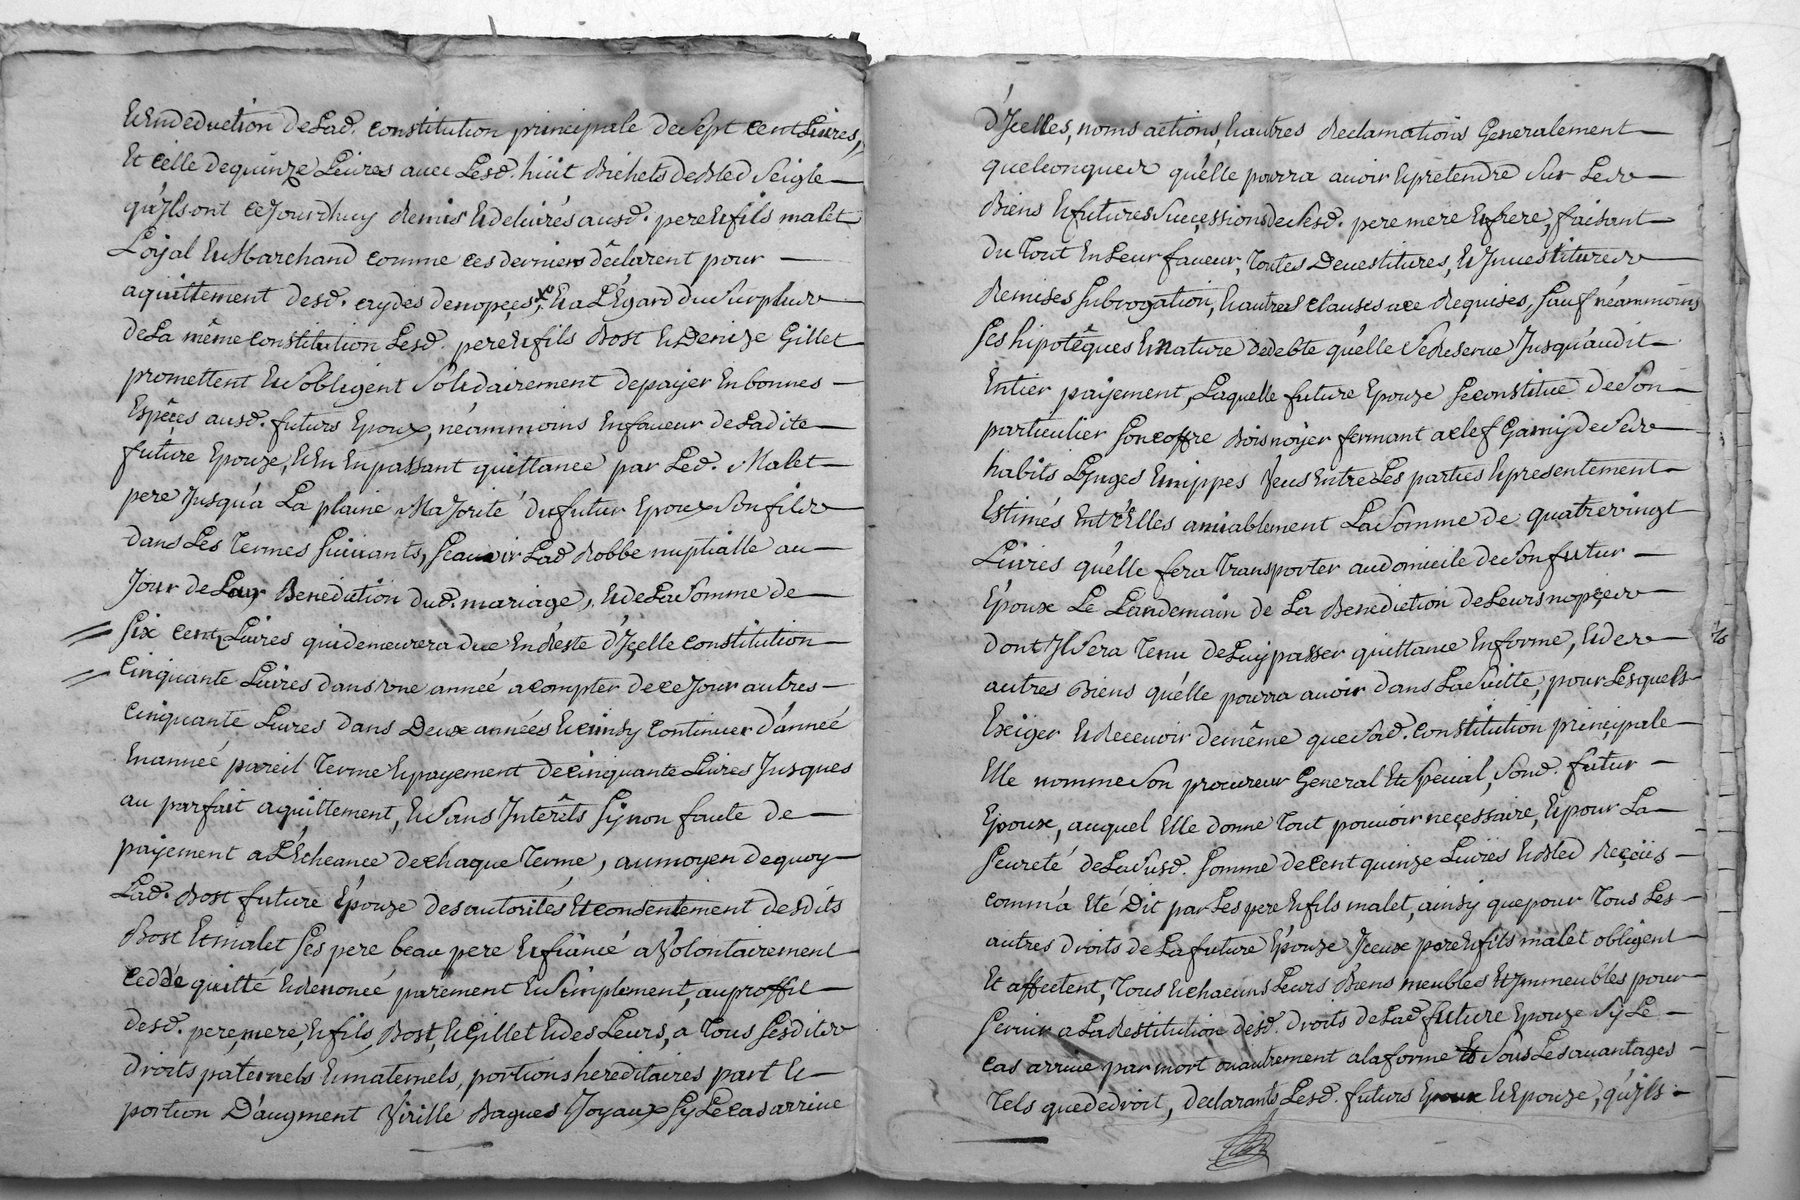 Et en deduction de Lad. constitution principale de sept cent Livres,
Et celle de quinze Livres avec Lesd. huit Bichets de Bled Seigle —
qu'Jls ont ce Jourd'huy Remis Et delivrés ausd. pere Et fils malet
Loyal Et Marchand comme ces derniers déclarent pour —
aquittement desd. aydes de nopçes, Et a L'Egard du Surplus
de La même constitution Lesd. pere Et fils Bost Et Denize Gillet
promettent Et S'obligent Solidairement de payer En bonnes —
Espêces ausd. futurs Epoux, néammoins En faveur de Ladite —
future Epouze, Et En passant quittance par Led. Malet —
pere Jusqu'a La plaine Majorité du futur Epoux Son fils
dans Les Termes Suivants, Scavoir Lad Robbe nuptialle au —
Jour de La Benediction dud. mariage, Et de La Somme de —
Six cent Livres qui demeurera due En Reste d'Jcelle constitution —
Cinquante Livres dans une année a compter de ce Jour autres —
Cinquante Livres dans Deux années Et ainsy Continuer d'année
En année pareil Terme Et payement de cinquante Livres Jusques
au parfait aquittement, Et Sans Intérêts Sy non faute de —
payement a L'Echeance de chaque Terme, au moyen de quoy —
Lad. Bost future Epouze des autorités Et consentement desdits
Bost Et malet Ses pere beau pere Et fiancé a Volontairement
cedde quitté Et renoncé purement Et Simplement, au proffit —
desd. pere, mere, Et fils, Bost, Et Gillet Et des Leurs, a Tous Sesdits
Droits paternels Et maternels, portions hereditaires part Et —
portion D'augment Virille Bagues Joyaux Sy Le cas arrive
d'Jcelles, noms actions, Et autres Reclamations Generalement —
quelconques qu'elle pourra avoir Et pretendre Sur Les
Biens Et futures Successions de Sesd. pere mere Et frere, faisant —
du Tout En Leur faveur, Toutes Devestitures, Et Jnvestitures
Remises Subrogation, Et autres clauses a ce Requises, Sauf néammoins
Ses hipotêques Et nature de debte qu'elle Se Reserve Jusqu'audit —
Entier payement, Laquelle future Epouze Se constitue de Son —
particulier Son coffre Bois noyer fermant a clef Garny de Ses
habits Linges Et nippes Veus Entre Les parties Et presentement —
Estimés Entr'Elles amiablement La Somme de quatre vingt
Livres qu'elle fera Transporter au domicile de Son futur —
Epoux Le Landemain de La Benediction de Leurs nopçes
dont Jl Sera Tenu de Luy passer quittance En forme, Et des
autres Biens qu'elle pourra avoir dans La Suitte, pour Lesquels
Exiger Et Recevoir de même que Sad. constitution principale —
Elle nomme Son procureur General Et Special, Sond. futur —
Epoux, auquel Elle donne Tout pouvoir neçessaire, Et pour La
Seureté de La Susd. Somme de cent quinze Livres Et Bled Reçeüs —
comm'a Eté Dit par Les pere Et fils malet, ainsy que pour Tous Les —
autres droits de La future Epouze Jceux pere Et fils malet obligent
Et affectent, Tous Et chacuns Leurs Biens meubles Et Jmmeubles pour
Servir a La Restitution desd. droits de Lad future Epouze Sy Le —
cas arrive par mort ou autrement a la forme Et Sous Les avantages
Tels que de droit, declarants Lesd. futurs Epoux Et Epouze, qu'jls —